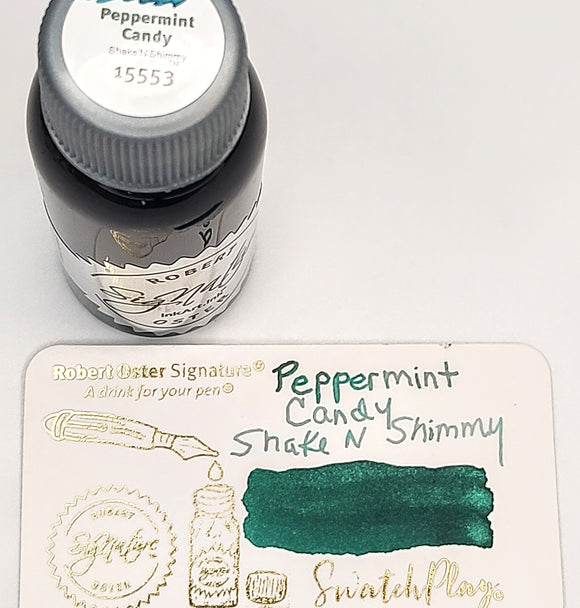 Peppermint
Candy
Shake'N'Shimmy
TM
15553
ROBERT
Signature
InkArt.Ink
OSTER
Robert Oster Signature©
A drink for your pen©
Peppermint
Candy
Shake N Shimmy
ROBERT
SigNature
OSTER
SwatchPlay©